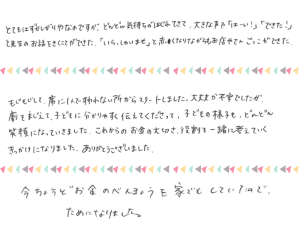 とてもはずかしがりやなのですが、どんどん気持ちがほぐれてきて、大きな声で「はーい!」「できた!」
と先生のお話をきくことができた。「いらっしゃいませ」と恥しくなりながらもお店やさんごっこができた。
もじもじして、席に1人で拘れない所からスタートしました。大丈夫か不安でしたが、
歯をまじえて、子どもに分かりやすく伝えてくださって、子どもの様子も、どんどん
笑顔になっていきました。これからのお金の大切さ、役割を一緒に考えていく
きっかけになりました。ありがとうございました。
今ちょうどお金のべんきょうも家でもしていたので、
ためになりました。